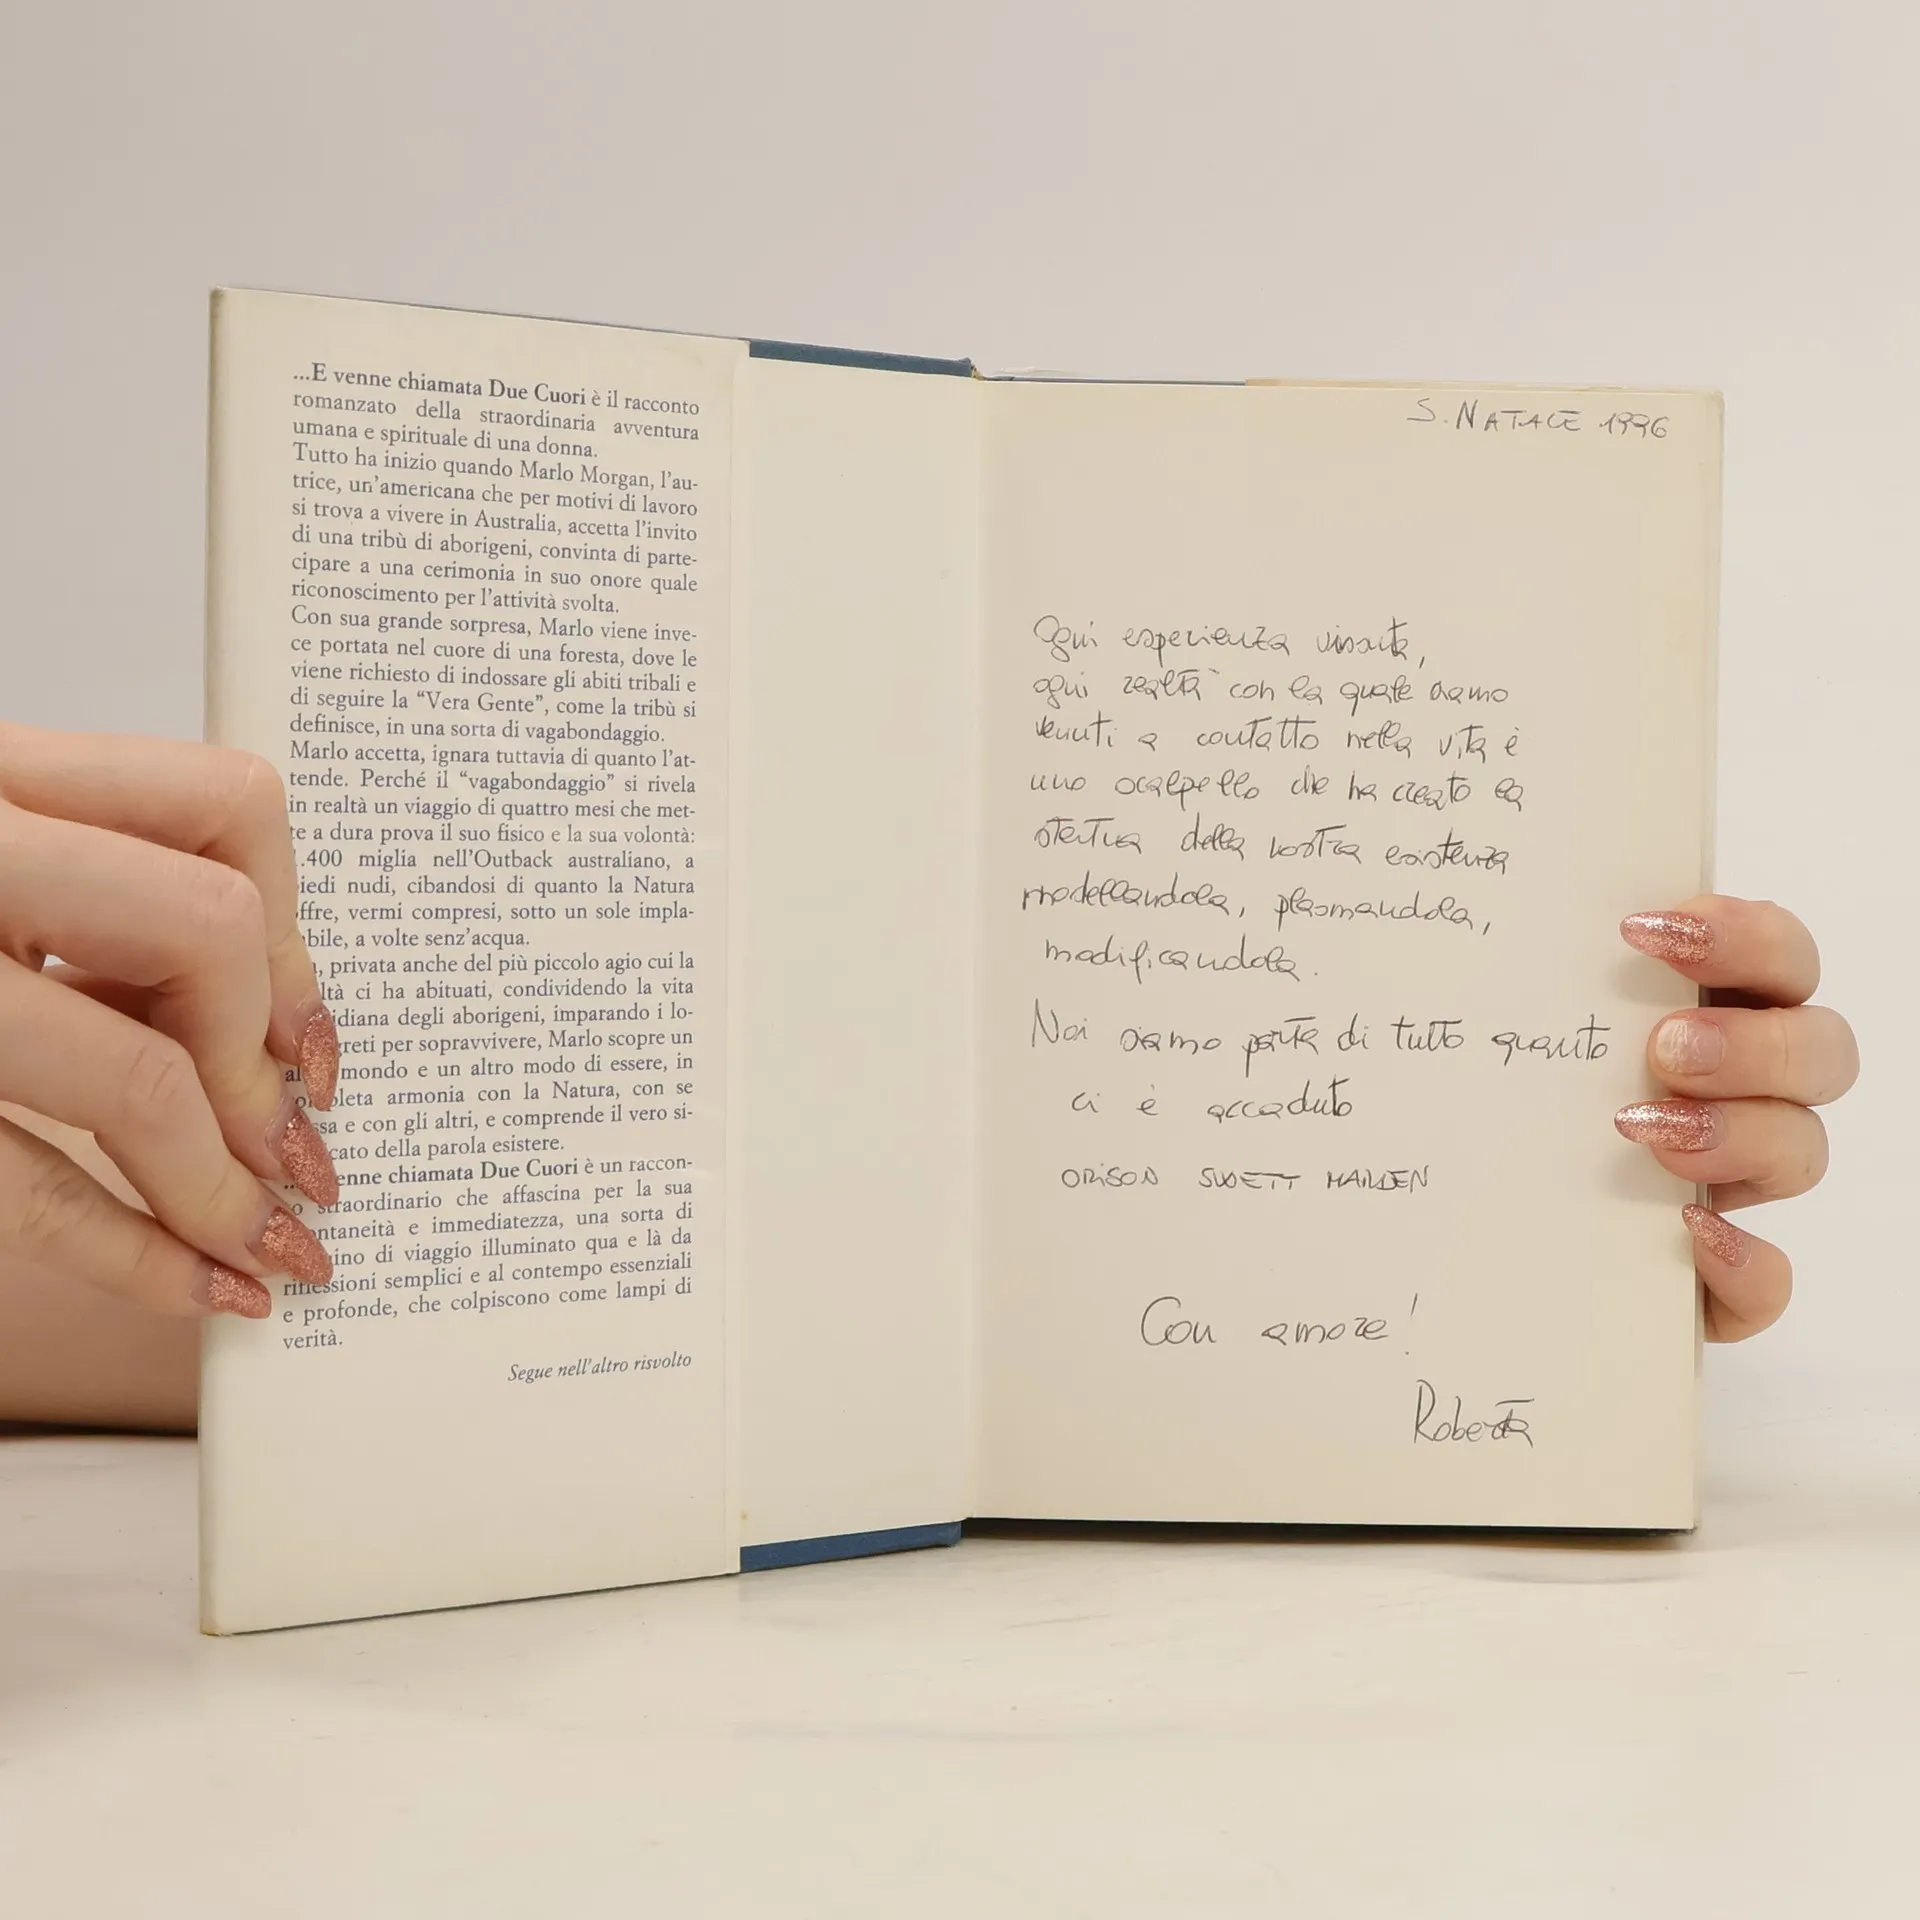 ...E venne chiamata Due Cuori è il racconto
romanzato della straordinaria avventura
umana e spirituale di una donna.
Tutto ha inizio quando Marlo Morgan, l'au-
trice, un'americana che per motivi di lavoro
si trova a vivere in Australia, accetta l'invito
di una tribù di aborigeni, convinta di parte-
cipare a una cerimonia in suo onore quale
riconoscimento per l'attività svolta.
Con sua grande sorpresa, Marlo viene inve-
ce portata nel cuore di una foresta, dove le
viene richiesto di indossare gli abiti tribali e
di seguire la “Vera Gente”, come la tribù si
definisce, in una sorta di vagabondaggio.
Marlo accetta, ignara tuttavia di quanto l'at-
tende. Perché il “vagabondaggio” si rivela
in realtà un viaggio di quattro mesi che met-
te a dura prova il suo fisico e la sua volontà:
.400 miglia nell'Outback australiano, a
iedi nudi, cibandosi di quanto la Natura
ffre, vermi compresi, sotto un sole impla-
bile, a volte senz'acqua.
, privata anche del più piccolo agio cui la
ltà ci ha abituati, condividendo la vita
idiana degli aborigeni, imparando i lo-
greti per sopravvivere, Marlo scopre un
al mondo e un altro modo di essere, in
pleta armonia con la Natura, con se
ssa e con gli altri, e comprende il vero si-
cato della parola esistere.
..enne chiamata Due Cuori è un raccon-
o straordinario che affascina per la sua
ontaneità e immediatezza, una sorta di
ino di viaggio illuminato qua e là da
riflessioni semplici e al contempo essenziali
e profonde, che colpiscono come lampi di
verità.
Segue nell'altro risvolto
S. NATALE 1996
Ogni esperienza vissuta,
ogni realtà con la quale siamo
venuti a contatto nella vita è
uno scalpello che ha creato la
statua della nostra esistenza
modellandola, plasmandola,
modificandola.
Noi siamo parte di tutto quanto
ci è accaduto
ORISON SWETT MARDEN
Con amore!
Roberta